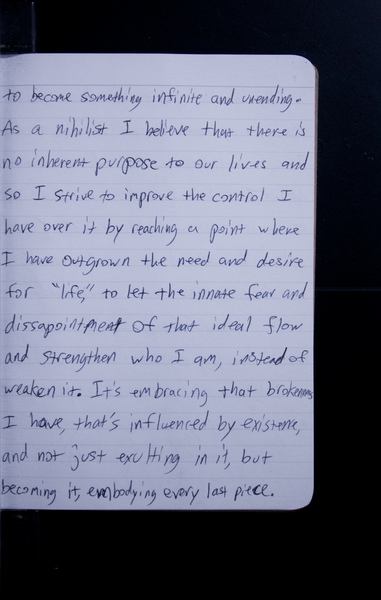 to become something infinite and unending.
As a nihilist I believe that there is
no inherent purpose to our lives and
so I strive to improve the control I
have over it by reaching a point where
I have outgrown the need and desire
for "life," to let the innate fear and
dissapointment of that ideal flow
and strengthen who I am, instead of
weaken it. It's embracing that brokenness
I have, that's influenced by existence,
and not just exulting in it, but
becoming it, embodying every last piece.